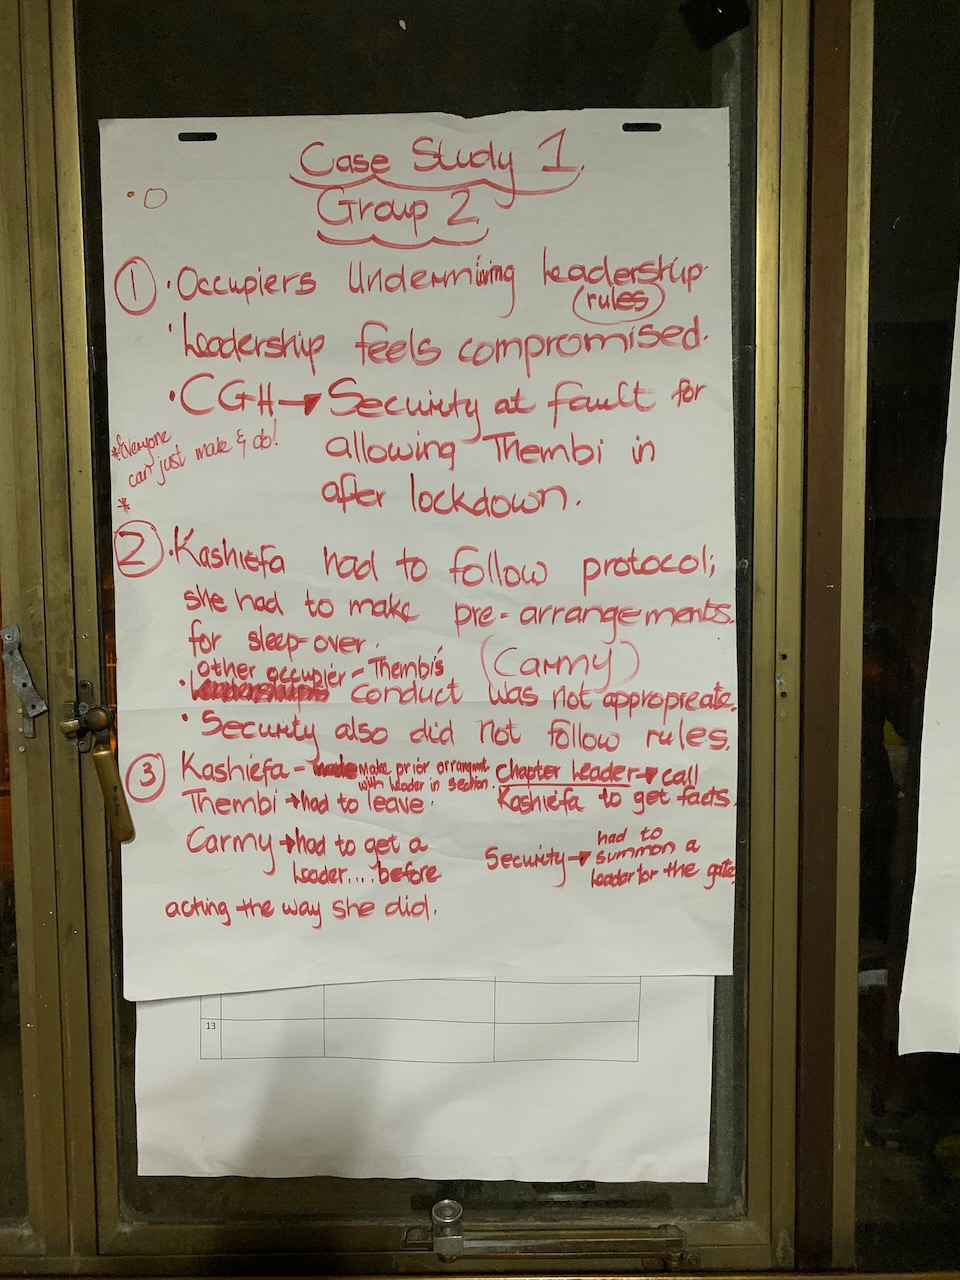 Case Study 1.
Group 2.
① • Occupiers Undermining leadership.
(rules)
• Leadership feels compromised.
• CGH → Security at fault for
allowing Thembi in
after lockdown.
* Everyone
can just make & do!
*
② • Kashiefa had to follow protocol;
she had to make pre-arrangements.
for sleep-over.
(Carmy)
other occupier - Thembi's
• conduct was not appropreate.
• Security also did not follow rules.
③ Kashiefa - Make prior arrangmt
with leader in section.
Thembi → had to leave.
Carmy → had to get a
leader.... before
acting the way she did.
Chapter leader → call
Kashiefa to get facts.
Security → had to
summon a
leader for the gate.
13